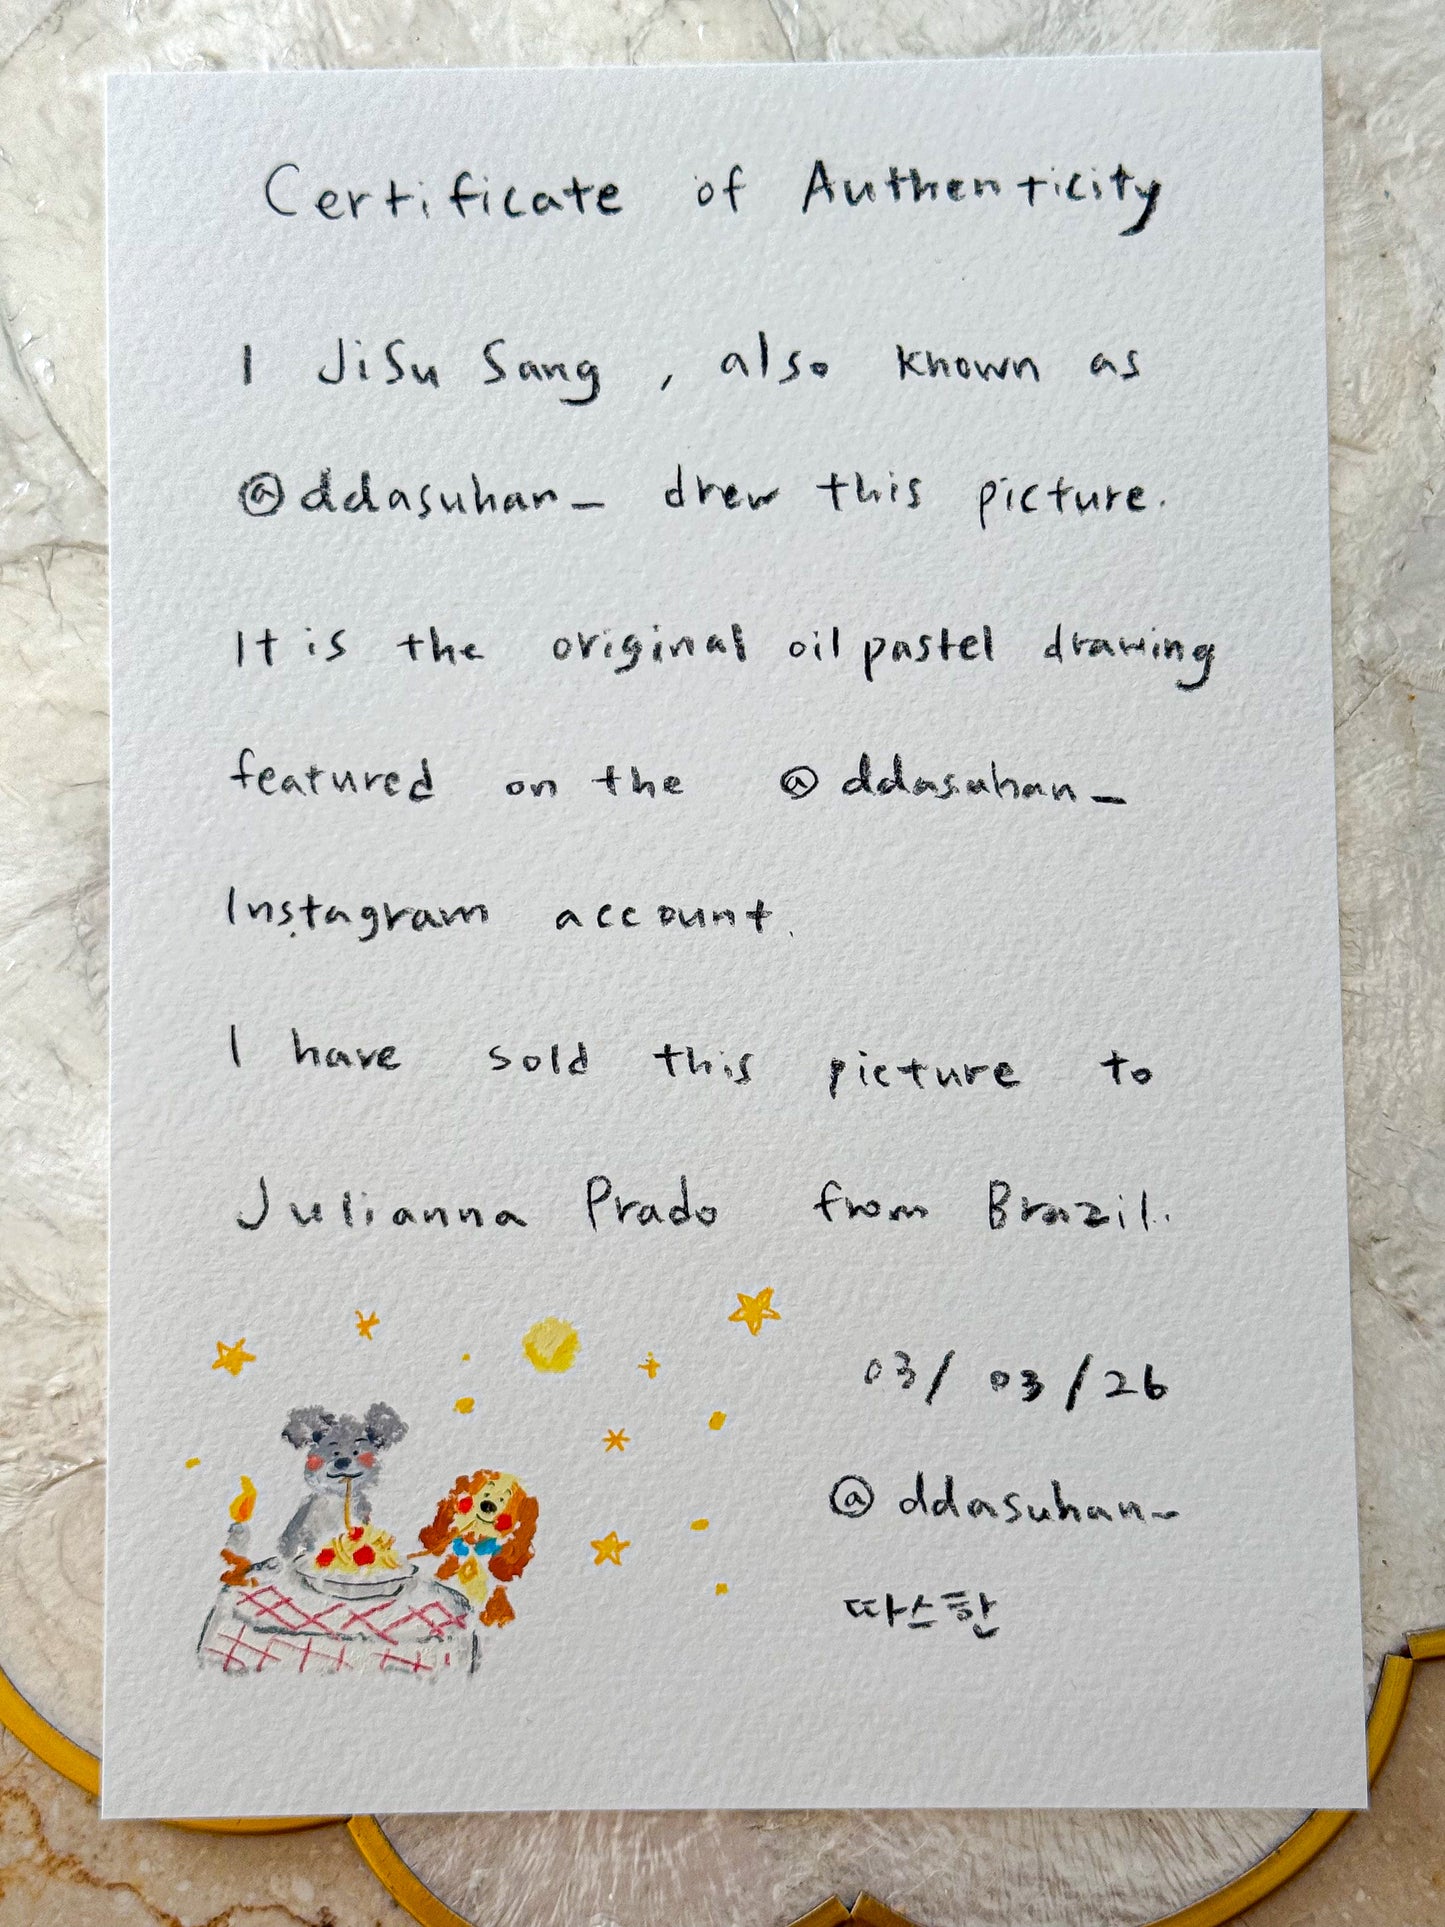 Certificate of Authenticity
I JiSu Sang, also known as
@ddasuhan_ drew this picture.
It is the original oil pastel drawing
featured on the @ddasuhan_
Instagram account.
I have sold this picture to
Julianna Prado from Brazil.
03/03/26
@ddasuhan_
따스한